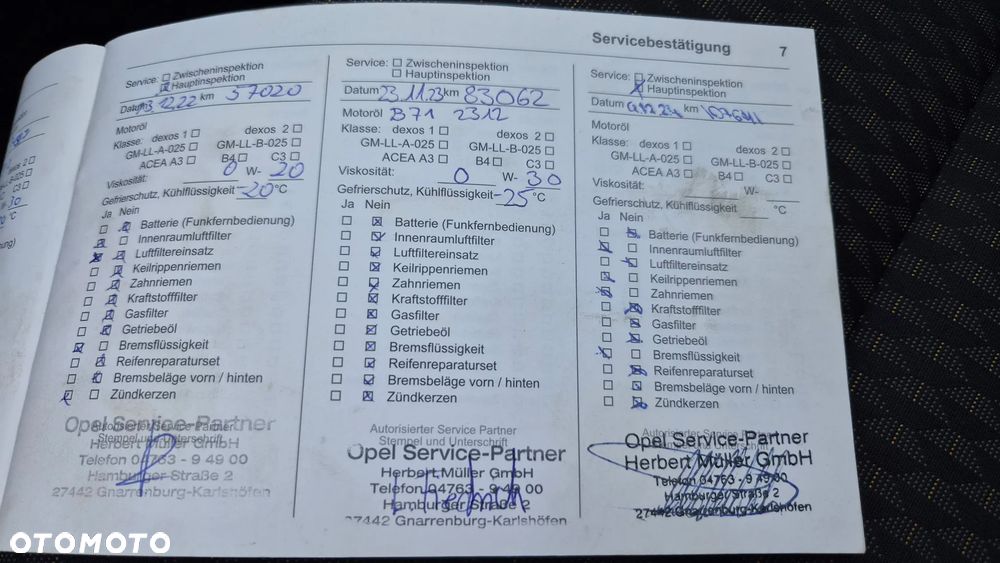 Servicebestätigung 7
Service: Zwischeninspektion
Hauptinspektion
Datum 13.12.22 km 57020
Motoröl
Klasse: dexos 1 dexos 2
GM-LL-A-025 GM-LL-B-025
ACEA A3 B4 C3
Viskosität: 0 W- 20
Gefrierschutz, Kühlflüssigkeit -20 °C
Ja Nein
Batterie (Funkfernbedienung)
Innenraumluftfilter
Luftfiltereinsatz
Keilrippenriemen
Zahnriemen
Kraftstofffilter
Gasfilter
Getriebeöl
Bremsflüssigkeit
Reifenreparaturset
Bremsbeläge vorn / hinten
Zündkerzen
Autorisierter Service Partner
Stempel und Unterschrift
Opel Service-Partner
Herbert Müller GmbH
Telefon 04763 - 9 49 00
Hamburger Straße 2
27442 Gnarrenburg-Karlshöfen
Service: Zwischeninspektion
Hauptinspektion
Datum 23.11.23 km 83062
Motoröl B71 2312
Klasse: dexos 1 dexos 2
GM-LL-A-025 GM-LL-B-025
ACEA A3 B4 C3
Viskosität: 0 W- 30
Gefrierschutz, Kühlflüssigkeit -25 °C
Ja Nein
Batterie (Funkfernbedienung)
Innenraumluftfilter
Luftfiltereinsatz
Keilrippenriemen
Zahnriemen
Kraftstofffilter
Gasfilter
Getriebeöl
Bremsflüssigkeit
Reifenreparaturset
Bremsbeläge vorn / hinten
Zündkerzen
Autorisierter Service Partner
Stempel und Unterschrift
Opel Service-Partner
Herbert Müller GmbH
Telefon 04763 - 9 49 00
Hamburger Straße 2
27442 Gnarrenburg-Karlshöfen
Service: Zwischeninspektion
Hauptinspektion
Datum km
Motoröl
Klasse: dexos 1 dexos 2
GM-LL-A-025 GM-LL-B-025
ACEA A3 B4 C3
Viskosität: W-
Gefrierschutz, Kühlflüssigkeit °C
Ja Nein
Batterie (Funkfernbedienung)
Innenraumluftfilter
Luftfiltereinsatz
Keilrippenriemen
Zahnriemen
Kraftstofffilter
Gasfilter
Getriebeöl
Bremsflüssigkeit
Reifenreparaturset
Bremsbeläge vorn / hinten
Zündkerzen
Opel Service-Partner
Herbert Müller GmbH
Telefon 04763 - 9 49 00
Hamburger Straße 2
27442 Gnarrenburg-Karlshöfen
OTOMOTO